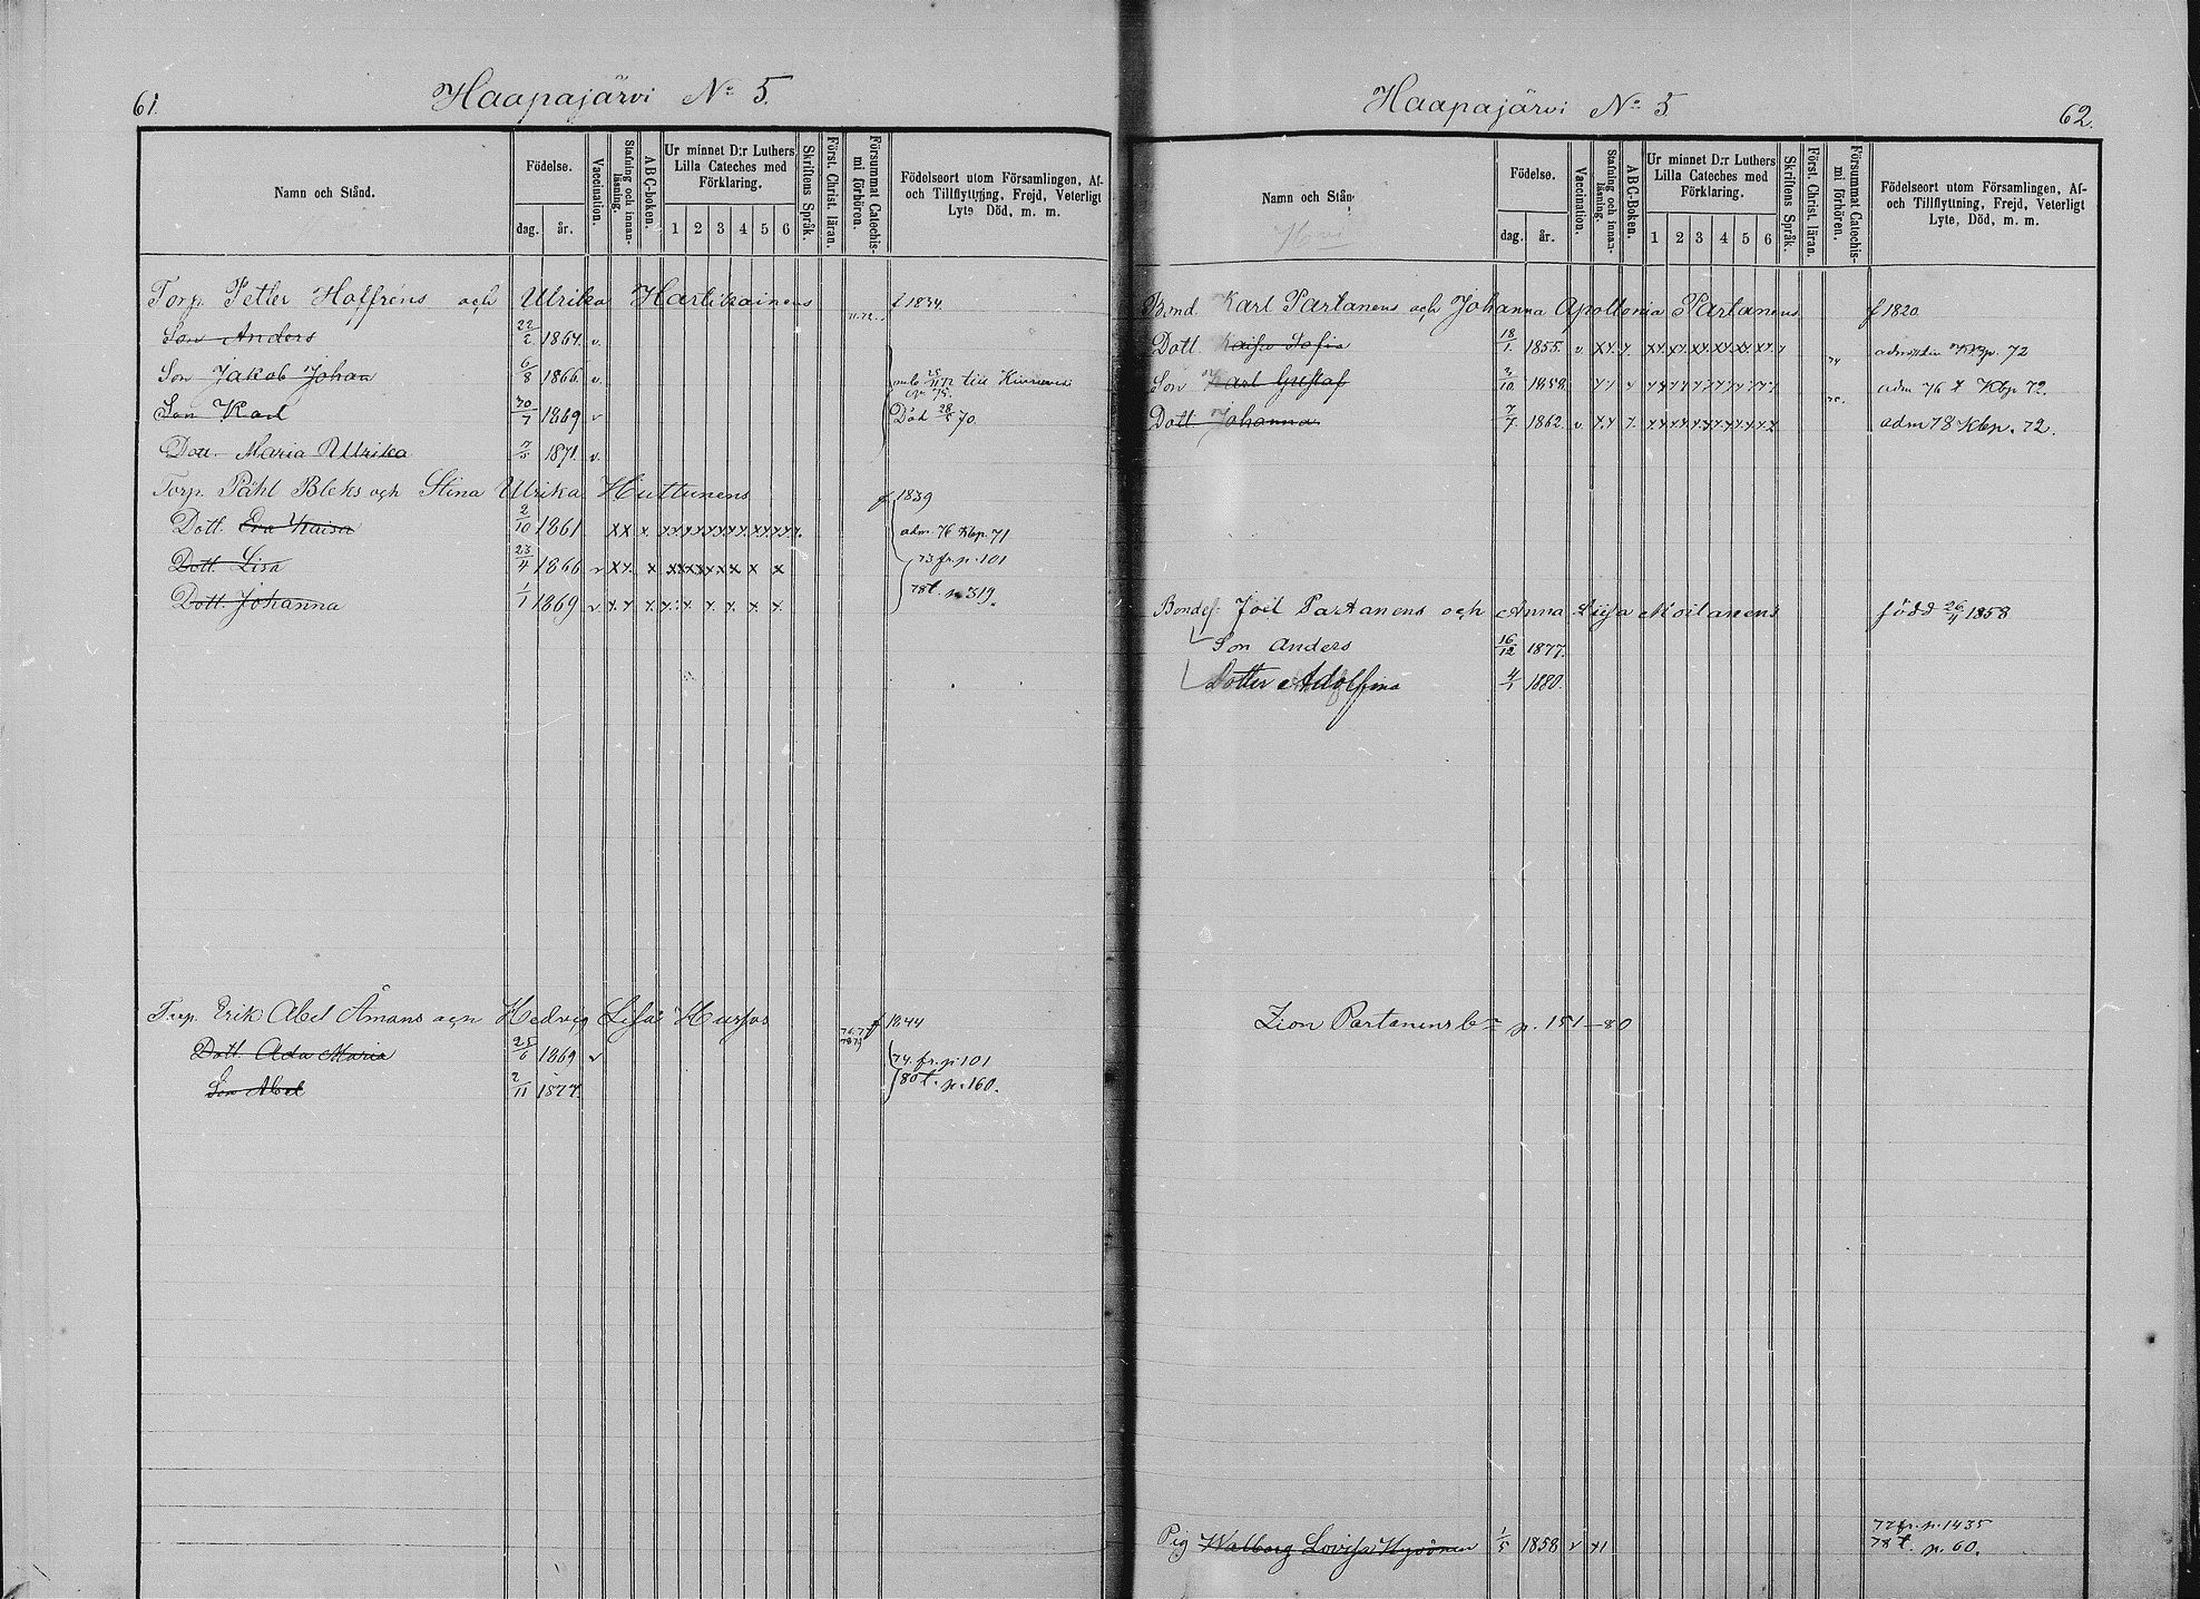 61.
Haapajärvi No 5.
Namn och Stånd.
Födelse.
dag.
år.
Vaccination.
Stafning och innanläsning.
ABC-boken.
Ur minnet D:r Luthers Lilla Cateches med Förklaring.
1 2 3 4 5 6
Skriftens Språk.
Först. Christ. läran.
Försummat Catechismi förhören.
Födelseort utom Församlingen, Af- och Tillflyttning, Frejd, Veterligt Lyte Död, m. m.
Torp. Petter Hoffréns och Ulrika Hartikainens f 1834.
Son Anders 22/2 1864. v.
Son Jakob Johan 6/8 1866. v. till
Son Karl 30/7 1869 v Död 28/5 70
Dott. Maria Ulrika 7/5 1871. v.
Torp. Påhl Bleks och Stina Ulrika Huttunens f 1839
Dott. Eva Kaisa 2/10 1861 xx x. adm. 76 Kbp. 71
Dott. Lisa 23/4 1866 v xx. x 73 fr. p. 101
Dott. Johanna 1/1 1869 v. x.x x. 78 t. p. 319.
Torp. Erik Abel Åmans och Hedvig Lisa f 1844
Dott. Ada Maria 25/6 1869 v 74. fr. p. 101
Son Abel 2/11 1877. 80 t. p. 160.
Haapajärvi No 5
62.
Namn och Stån
Födelse.
dag.
år.
Vaccination.
Stafning och innanläsning.
ABC-Boken.
Ur minnet D:r Luthers Lilla Cateches med Förklaring.
1 2 3 4 5 6
Skriftens Språk.
Först. Christ. läran.
Försummat Catechismi förhören.
Födelseort utom Församlingen, Af- och Tillflyttning, Frejd, Veterligt Lyte, Död, m. m.
Bond. Karl Partanens och Johanna Apollonia Partanens f 1820
Dott. Kaisa Sofia 18/1 1855. v xx. x. Kbp. 72
Son Karl Gustaf 3/10 1858. xx x adm 76 Kbp 72.
Dott. Johanna 7/7 1862. v x.x x. adm 78 Kbp. 72.
Bondes. Joel Partanens och Anna Liisa Moilanens född 26/11 1858
Son Anders 16/12 1877.
Dotter Adolfina 4/1 1880.
Zion Partanens p. 151-80
Pig Walborg Lovisa Hyvönen 1/5 1858 v x1 77 fr. p. 1435
78 t. p. 60.